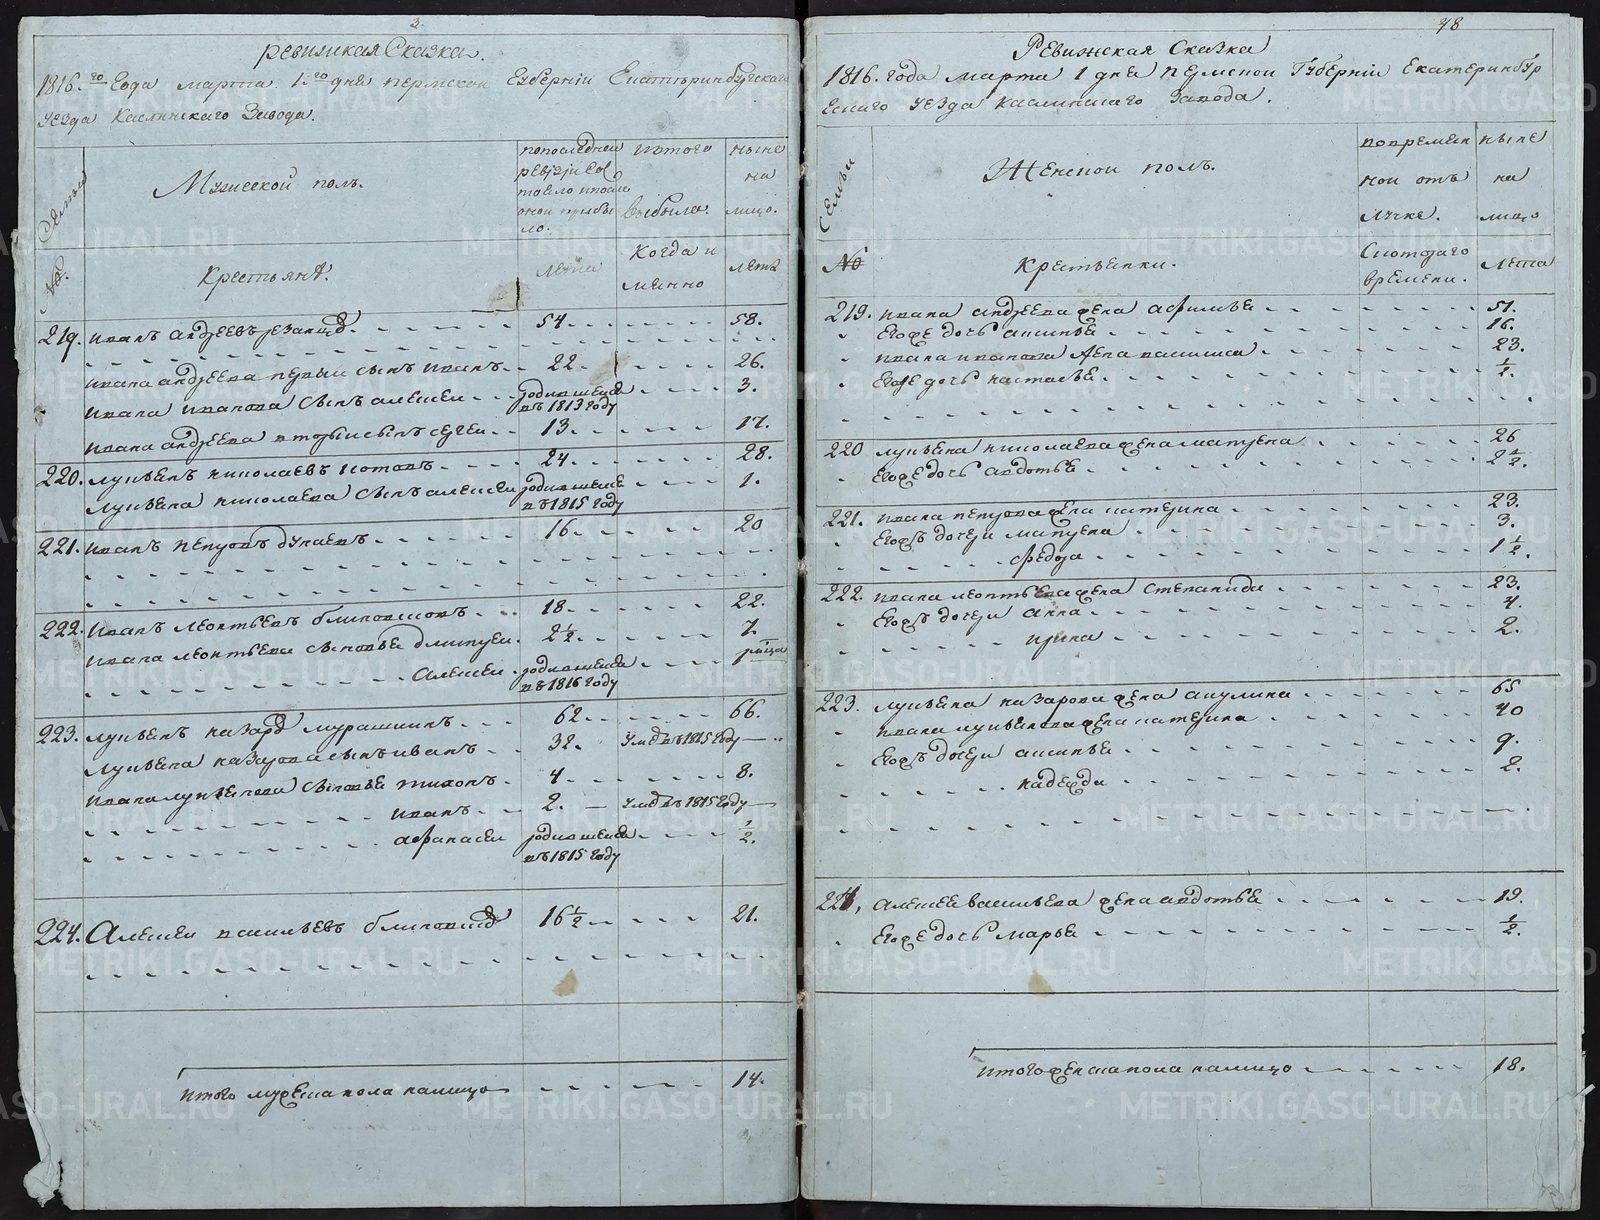 3.
Ревижская Сказка.
1816.го Года марта 1.го дня пермской Губерніи Екатеринбургскаго
уезда Каслинскаго Завода.
Семьи
№.
Мужеской полъ.
попоследней ревізіи состояло ипосле оной прибыло.
изтого выбыло.
ныне на лицо.
Крестьянъ.
лета
Когда и мянно
лета
219. иванъ андреевъ 54. 58.
ивана андреева первый сынъ иванъ 22. 26.
ивана иванова сынъ алексеи родившеися въ 1813 году 3.
ивана андреева вторый сынъ сергеи 13. 17.
220. лукьянъ николаевъ котовъ 24. 28.
лукьяна николаева сынъ алексеи родившеися въ 1815 году 1.
221. иванъ петровъ дунаевъ 16. 20
222. иванъ леонтьевъ блиновсковъ 18. 22.
ивана леонтьева сыновья дмитреи 2 1/2. 7.
алексеи родившеися въ 1816 году
223. лукьянъ назаровъ мурашкинъ 62. 66.
лукьяна назарова сынъ иванъ 32. умре въ 1815 году
ивана лукьянова сыновья тихонъ 4. 8.
иванъ 2. умре въ 1815 году
афанасеи родившеися въ 1815 году 1/2.
224. Алексеи васильевъ блиновсковъ 16 1/2 21.
итого мужеска пола налицо 14.
78
Ревижская Сказка
1816. года марта 1 дня пермской Губерніи Екатеринбур
гскаго уезда каслинскаго завода.
Семьи
№
Женской полъ.
вовременной отълучке.
ныне на лицо
Крестьянки.
Скотораго времени.
лета
219. ивана андреева жена афимья 51.
Егоже дочь аксинья 16.
ивана иванова жена василиса 23.
Егоже дочь настасья 1/2.
220 лукьяна николаева жена матрена 26
Егоже дочь авдотья 2 1/2.
221. ивана петрова жена катерина 23.
Егожъ дочери матрена 3.
федора 1 1/2.
222. ивана леонтьева жена степанида 23.
Егожъ дочери анна 4.
ирина 2.
223. лукьяна назарова жена акулина 65
ивана лукьянова жена катерина 40
Егожъ дочери аксинья 9.
надежда 2.
224, алексея васильева жена авдотья 19.
Егоже дочь марья 1/2.
итого женска пола налицо 18.
METRIKI.GASO-URAL.RU